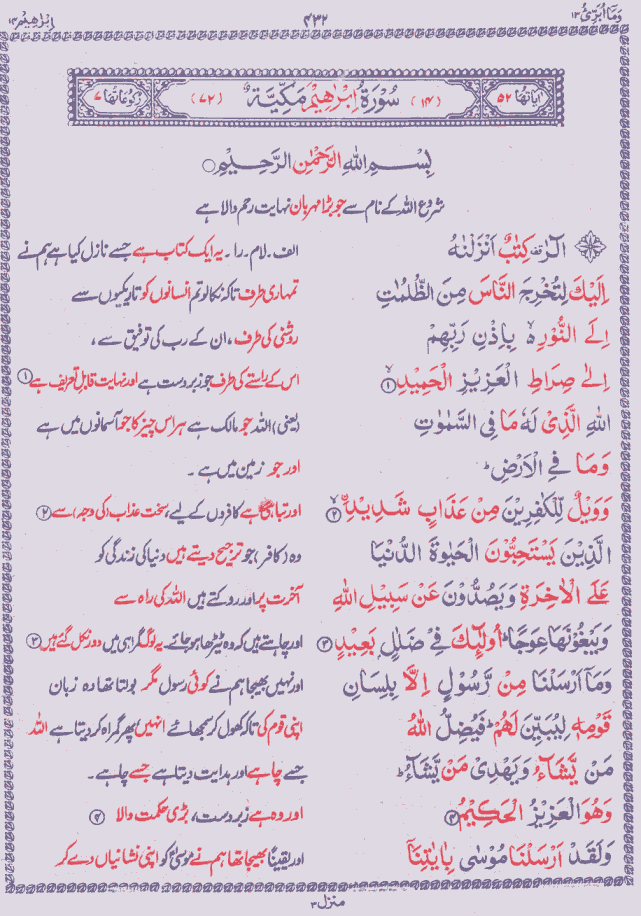 وَمَآ اُبَرِّئُ ۱۳ ۴۳۲ اِبْرٰهِیْم ۱۴
اٰیَاتُهَا ۵۲ (۱۴) سُوْرَةُ اِبْرٰهِیْمَ مَکِّیَّةٌ (۷۲) رُکُوْعَاتُهَا ۷
بِسْمِ اللّٰهِ الرَّحْمٰنِ الرَّحِیْمِ
شروع اللہ کے نام سے جو بڑا مہربان نہایت رحم والا ہے
الٓرٰ کِتٰبٌ اَنْزَلْنٰهُ الف۔لام۔را۔ یہ ایک کتاب ہے جسے نازل کیا ہے ہم نے
اِلَیْكَ لِتُخْرِجَ النَّاسَ مِنَ الظُّلُمٰتِ تمہاری طرف تاکہ نکالو تم انسانوں کو تاریکیوں سے
اِلَی النُّوْرِ بِاِذْنِ رَبِّهِمْ روشنی کی طرف، ان کے رب کی توفیق سے،
اِلٰی صِرَاطِ الْعَزِیْزِ الْحَمِیْدِ ۱ اس کے راستے کی طرف جو زبردست ہے اور نہایت قابلِ تعریف ہے ۱
اللّٰهِ الَّذِیْ لَهٗ مَا فِی السَّمٰوٰتِ (یعنی) اللہ جو مالک ہے ہر اس چیز کا جو آسمانوں میں ہے
وَمَا فِی الْاَرْضِ ؕ اور جو زمین میں ہے۔
وَوَیْلٌ لِّلْکٰفِرِیْنَ مِنْ عَذَابٍ شَدِیْدِ ۲ اور تباہی ہے کافروں کے لیے، سخت عذاب (کی وجہ) سے ۲
الَّذِیْنَ یَسْتَحِبُّوْنَ الْحَیٰوةَ الدُّنْیَا وہ (کافر) جو ترجیح دیتے ہیں دنیا کی زندگی کو
عَلَی الْاٰخِرَةِ وَیَصُدُّوْنَ عَنْ سَبِیْلِ اللّٰهِ آخرت پر اور روکتے ہیں اللہ کی راہ سے
وَیَبْغُوْنَهَا عِوَجًا ؕ اُولٰٓئِكَ فِیْ ضَلٰلٍ بَعِیْدٍ ۳ اور چاہتے ہیں کہ وہ ٹیڑھا ہو جائے۔ یہ لوگ گمراہی میں دور نکل گئے ہیں ۳
وَمَآ اَرْسَلْنَا مِنْ رَّسُوْلٍ اِلَّا بِلِسَانِ اور نہیں بھیجا ہم نے کوئی رسول مگر بولتا تھا وہ زبان
قَوْمِهٖ لِیُبَیِّنَ لَهُمْ ؕ فَیُضِلُّ اللّٰهُ اپنی قوم کی تاکہ کھول کر سمجھائے انہیں پھر گمراہ کر دیتا ہے اللہ
مَنْ یَّشَآءُ وَیَهْدِیْ مَنْ یَّشَآءُ ؕ جسے چاہے اور ہدایت دیتا ہے جسے چاہے۔
وَهُوَ الْعَزِیْزُ الْحَکِیْمُ ۴ اور وہ ہے زبردست، بڑی حکمت والا ۴
وَلَقَدْ اَرْسَلْنَا مُوْسٰی بِاٰیٰتِنَآ اور یقیناً بھیجا تھا ہم نے موسیٰ کو اپنی نشانیاں دے کر
منزل ۳